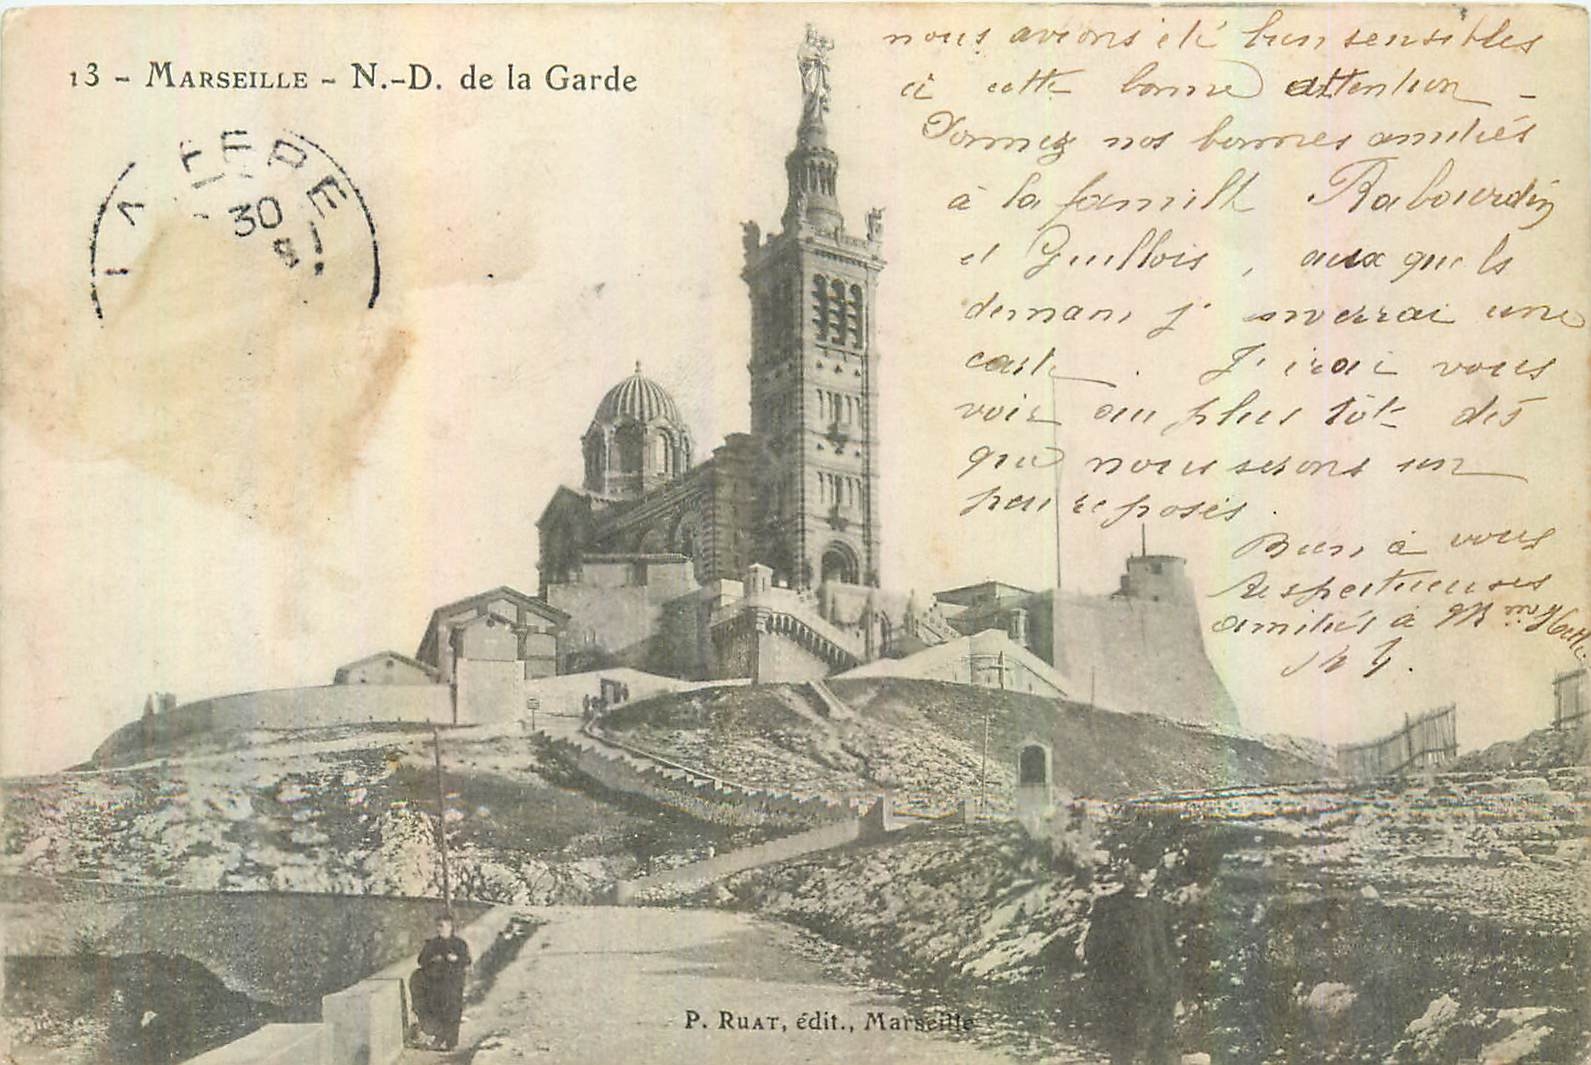 13 - MARSEILLE - N.-D. de la Garde
LA FERE
30
nous avions été bien sensibles
à cette bonne attention -
Donnez nos bonnes amitiés
à la famille Rabourdin
et Guillois,
demain j' enverrai une
carte. J'irai vous
voir au plus tôt dès
que nous serons un
peu reposés.
Bien à vous
respectueuses
amitiés à Mme
P. RUAT, édit., Marseille